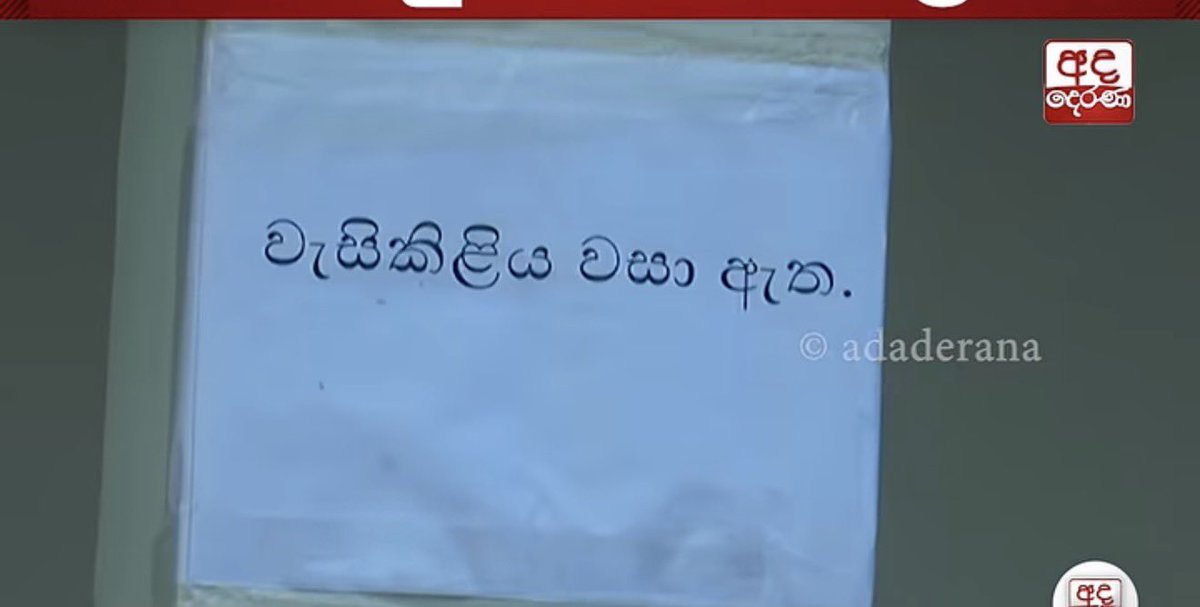 අද
දෙරණ
වැසිකිළිය වසා ඇත.
© adaderana
අද